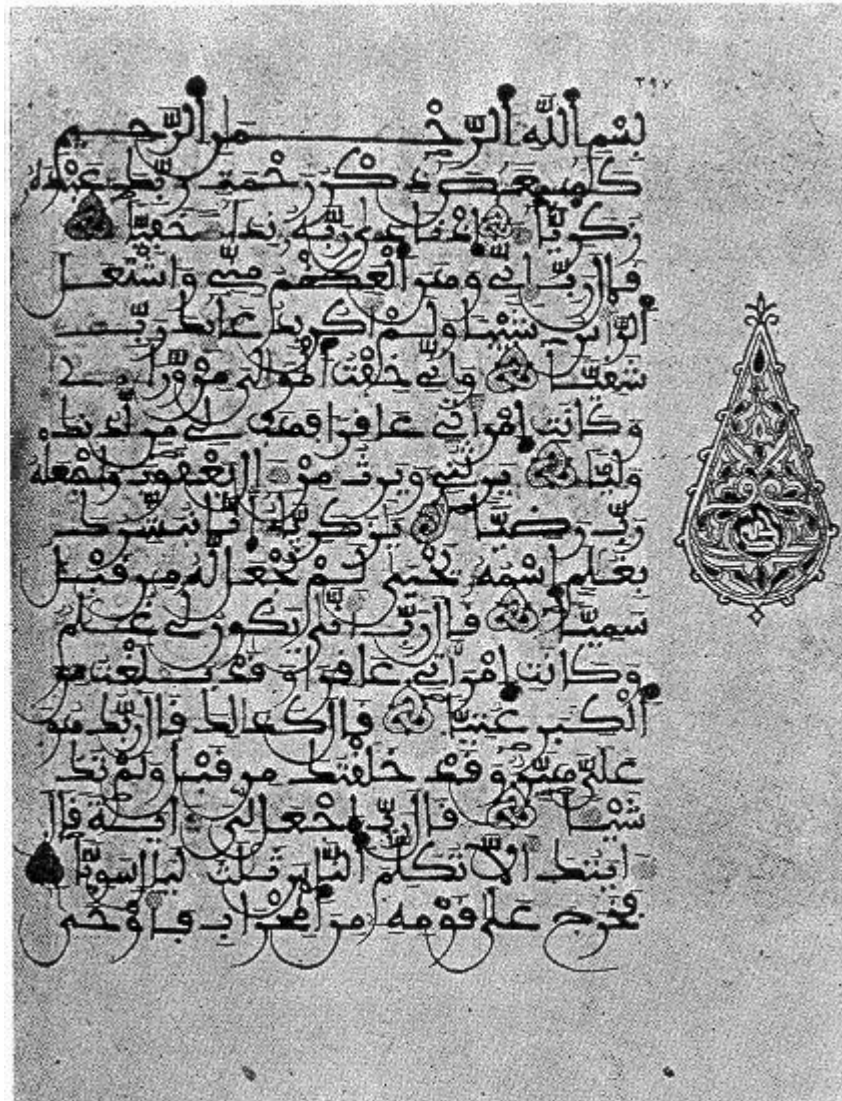 ٣٩٧
بسم الله الرحمن الرحيم
كهيعص ذكر رحمت ربك عبده
زكريا إذ نادى ربه نداء خفيا
قال رب إني وهن العظم مني واشتعل
الرأس شيبا ولم أكن بدعائك رب
شقيا وإني خفت الموالي من وراءي
وكانت امرأتي عاقرا فهب لي من لدنك
وليا يرثني ويرث من ءال يعقوب واجعله
رب رضيا يزكريا إنا نبشرك
بغلم اسمه يحيى لم نجعل له من قبل
سميا قال رب أنى يكون لي غلم
وكانت امرأتي عاقرا وقد بلغت من
الكبر عتيا قال كذلك قال ربك هو
علي هين وقد خلقتك من قبل ولم تك
شيئا قال رب اجعل لي ءاية قال
ءايتك ألا تكلم الناس ثلث ليال سويا
فخرج على قومه من المحراب فأوحى